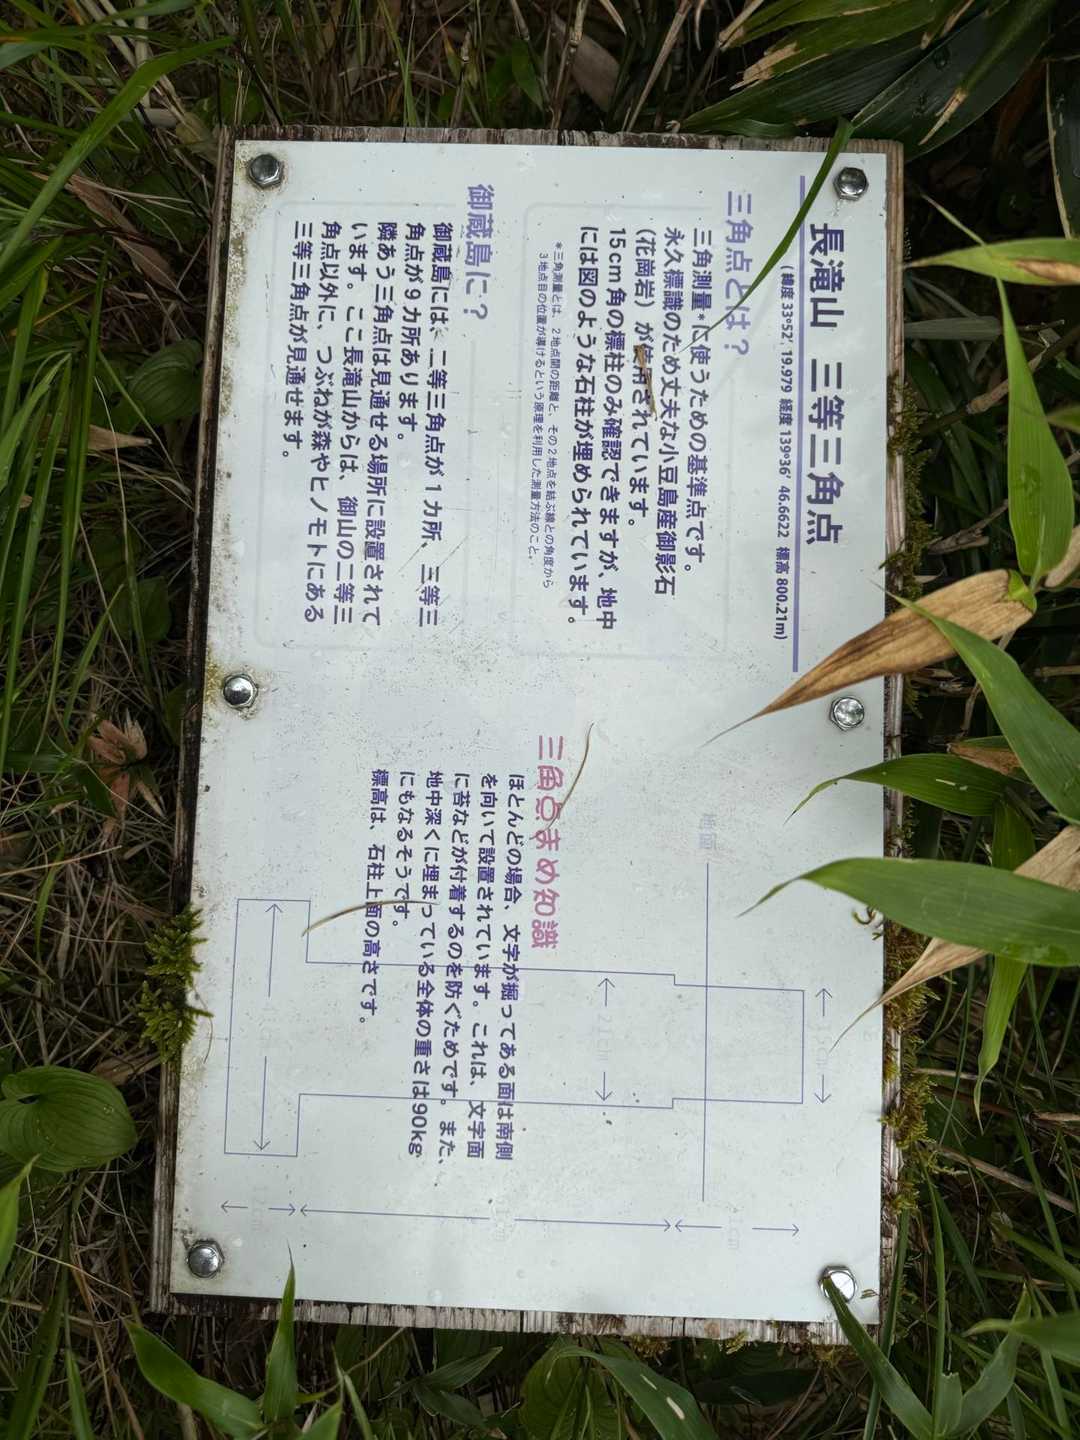 長滝山 三等三角点
(緯度 33°52′ 19.979 経度 139°36′ 46.6622 標高 800.21m)
三角点とは？
三角測量*に使うための基準点です。
永久標識のため丈夫な小豆島産御影石
(花崗岩) が使用されています。
15cm角の標柱のみ確認できますが、地中
には図のような石柱が埋められています。
*三角測量とは、2地点間の距離と、その2地点を結ぶ線との角度から
3地点目の位置が導けるという原理を利用した測量方法のこと。
御蔵島に？
御蔵島には、二等三角点が1カ所、三等三
角点が9カ所あります。
隣あう三角点は見通せる場所に設置されて
います。ここ長滝山からは、御山の二等三
角点以外に、つぶねが森やヒノモトにある
三等三角点が見通せます。
地面
21cm
三角点まめ知識
ほとんどの場合、文字が掘ってある面は南側
を向いて設置されています。これは、文字面
に苔などが付着するのを防ぐためです。また、
地中深くに埋まっている全体の重さは90kg
にもなるそうです。
標高は、石柱上面の高さです。